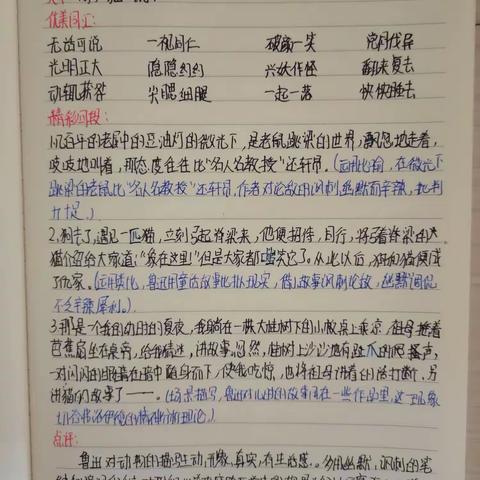 优美词汇:
无话可说 一视同仁 破颜一笑 党同伐异
光明正大 隐隐约约 兴妖作怪 翻来复去
动辄获咎 尖腮细腿 一起一落 快快睡去
精彩句段:
1.几百斗的老屋中的豆油灯的微光下,是老鼠跳梁的世界,飘忽地走着,
吱吱地叫着,那态度往往比“名人名教授”还轩昂。(运用比喻,在微光下
跳梁的老鼠比“名人名教授”还轩昂,作者对论敌的讽刺幽默而辛辣,批判
力足。)
2.狗去了,遇见一匹猫,立刻弓起脊梁来,他便招待,同行,将弓着脊梁的
猫介绍给大家道:“象在这里!”但是大家都嗤笑它了。从此以后,狗和猫便成
了仇家。(运用类化,鲁迅用童话故事比拟现实,借故事讽刺论敌,幽默调侃
不乏辛辣犀利。)
3.那是一个我的幼时的夏夜,我躺在一株大桂树下的小板桌上乘凉,祖母摇着
芭蕉扇坐在桌旁,给我猜谜,讲故事。忽然,桂树上沙沙地有趾爪的爬搔声,
一对闪闪的眼睛在暗中随声而下,使我吃惊,也将祖母讲着的话打断,另
讲猫的故事了——。(场景描写,鲁迅对儿时的故事在一些作品里,这一
点评:
鲁迅对动书的描写生动,形象,真实,有生活感。多用幽默,讽刺的笔